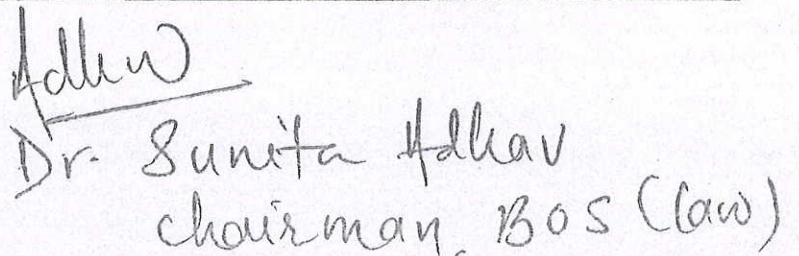 Adhav
Dr. Sunita Adhav
chairman, BOS (law)